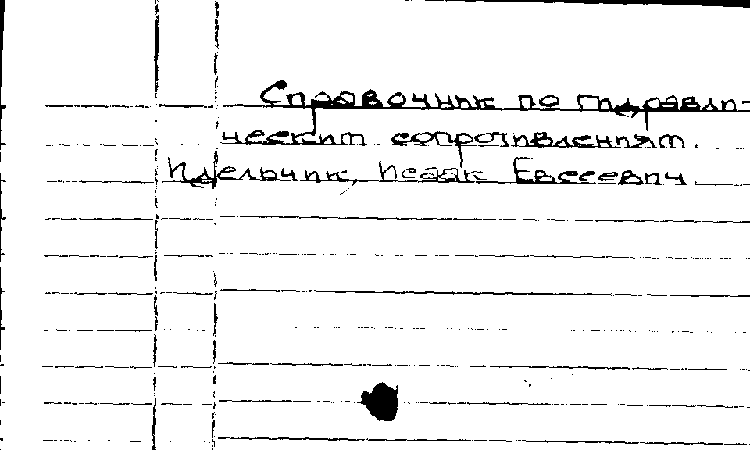 Справочник по гидравли-
ческим сопротивлениям.
Идельчик, Исаак Евсеевич.